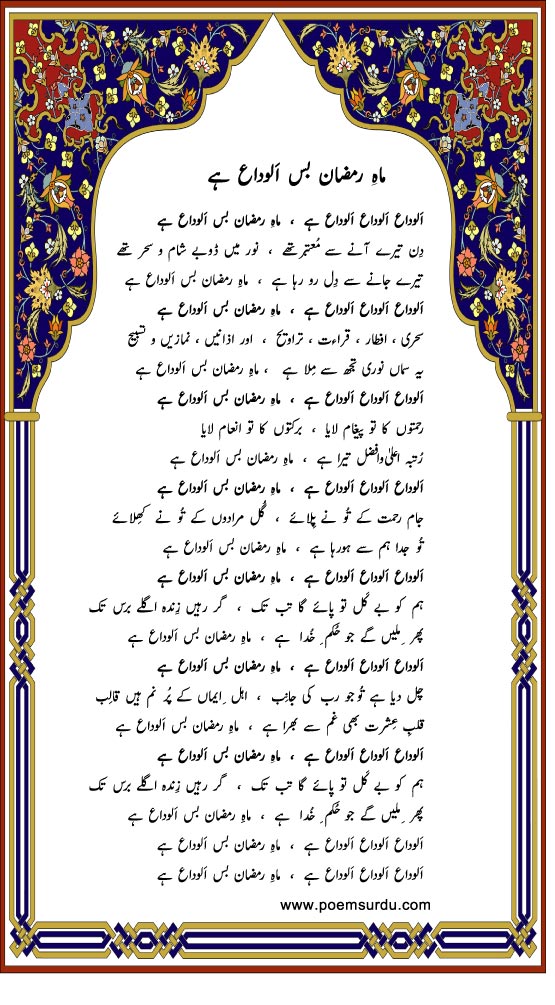 ماہِ رمضان بس اَلوداع ہے
اَلوداع اَلوداع اَلوداع ہے ، ماہِ رمضان بس اَلوداع ہے
دِن تیرے آنے سے مُعتبر تھے ، نور میں ڈوبے شام و سحر تھے
تیرے جانے سے دِل رو رہا ہے ، ماہِ رمضان بس اَلوداع ہے
اَلوداع اَلوداع اَلوداع ہے ، ماہِ رمضان بس اَلوداع ہے
سحری ، افطار ، قراءت ، تراویح ، اور اذانیں ، نمازیں و تسبیح
یہ سماں نوری تجھ سے مِلا ہے ، ماہِ رمضان بس اَلوداع ہے
اَلوداع اَلوداع اَلوداع ہے ، ماہِ رمضان بس اَلوداع ہے
رحمتوں کا تو پیغام لایا ، برکتوں کا تو انعام لایا
رُتبہ اعلیٰ وافضل تیرا ہے ، ماہِ رمضان بس اَلوداع ہے
اَلوداع اَلوداع اَلوداع ہے ، ماہِ رمضان بس اَلوداع ہے
جام رحمت کے تُو نے پِلائے ، گُل مرادوں کے تُو نے کھِلائے
تُو جدا ہم سے ہورہا ہے ، ماہِ رمضان بس اَلوداع ہے
اَلوداع اَلوداع اَلوداع ہے ، ماہِ رمضان بس اَلوداع ہے
ہم کو بے کَل تو پائے گا تب تک ، گر رہیں زِندہ اگلے برس تک
پھر ِملیں گے جو حُکم ِ خُدا ہے ، ماہِ رمضان بس اَلوداع ہے
اَلوداع اَلوداع اَلوداع ہے ، ماہِ رمضان بس اَلوداع ہے
چل دیا ہے تُو جو رب کی جانِب ، اہل ِایماں کے پُر نم ہیں قالِب
قلبِ عِشرت بھی غم سے بھرا ہے ، ماہِ رمضان بس اَلوداع ہے
اَلوداع اَلوداع اَلوداع ہے ، ماہِ رمضان بس اَلوداع ہے
ہم کو بے کَل تو پائے گا تب تک ، گر رہیں زِندہ اگلے برس تک
پھر ِملیں گے جو حُکم ِ خُدا ہے ، ماہِ رمضان بس اَلوداع ہے
اَلوداع اَلوداع اَلوداع ہے ، ماہِ رمضان بس اَلوداع ہے
اَلوداع اَلوداع اَلوداع ہے ، ماہِ رمضان بس اَلوداع ہے
www.poemsurdu.com